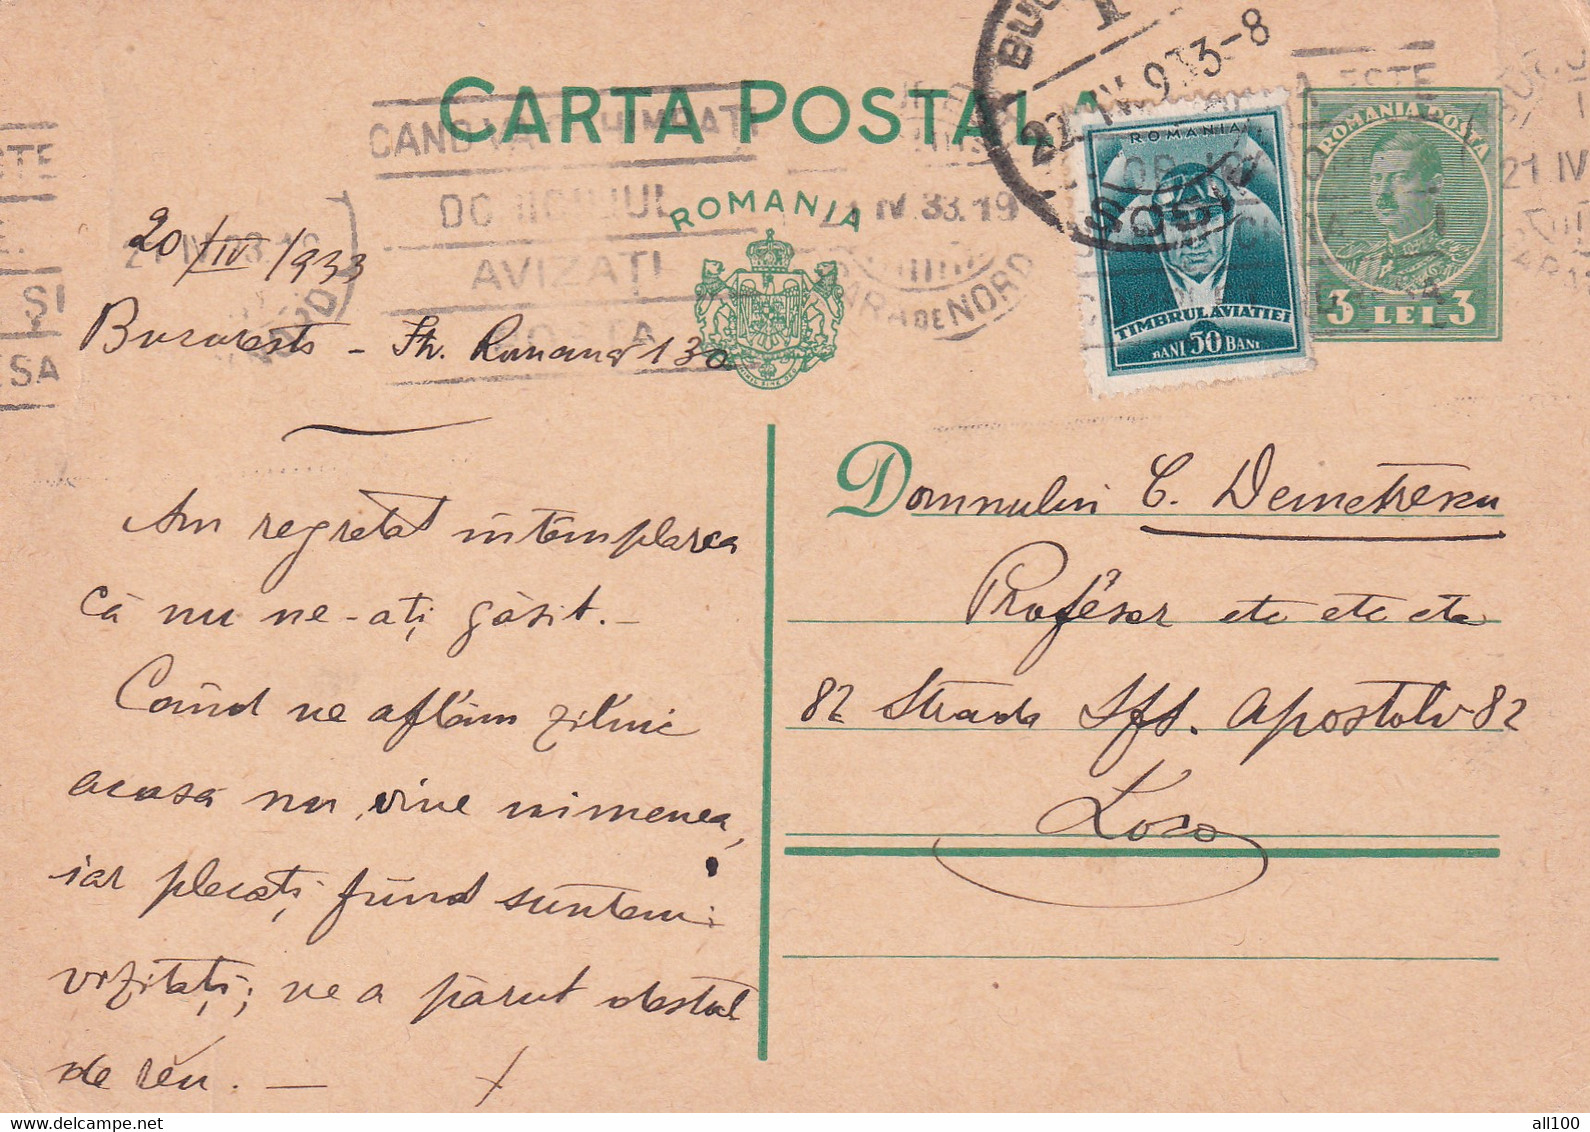 CARTA POSTALA
ROMANIA
CAND VA SCHIMBATI
DOMICILIUL
AVIZAȚI
POSTA
BUC
22 IV 933-8
SOSIRE
IV 33. 19
GARA DE NORD
21 IV
ESTE
ȘI
ROMANIA
TIMBRUL AVIATIEI
BANI 50 BANI
ROMANIA POSTA
3 LEI 3
NIHIL SINE DEO
20/IV/933
Bucuresti - Str. Romana 130
Am regretat întâmplarea
că nu ne-ați găsit. -
Când ne aflăm zilnic
acasă nu vine nimenea,
iar plecați fiind suntem
vizitați; ne a părut destul
de rău. -
Domnului C. Demetrescu
Profesor etc etc etc
82 Strada Sfț. Apostoli 82
Loco
all100